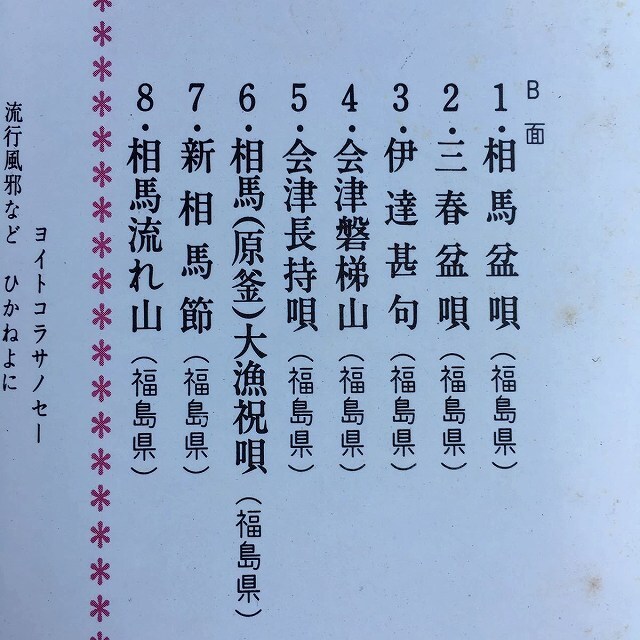 B面
1・相馬盆唄(福島県)
2・三春盆唄(福島県)
3・伊達甚句(福島県)
4・会津磐梯山(福島県)
5・会津長持唄(福島県)
6・相馬(原釜)大漁祝唄(福島県)
7・新相馬節(福島県)
8・相馬流れ山(福島県)
ヨイトコラサノセー
流行風邪など ひかねよに